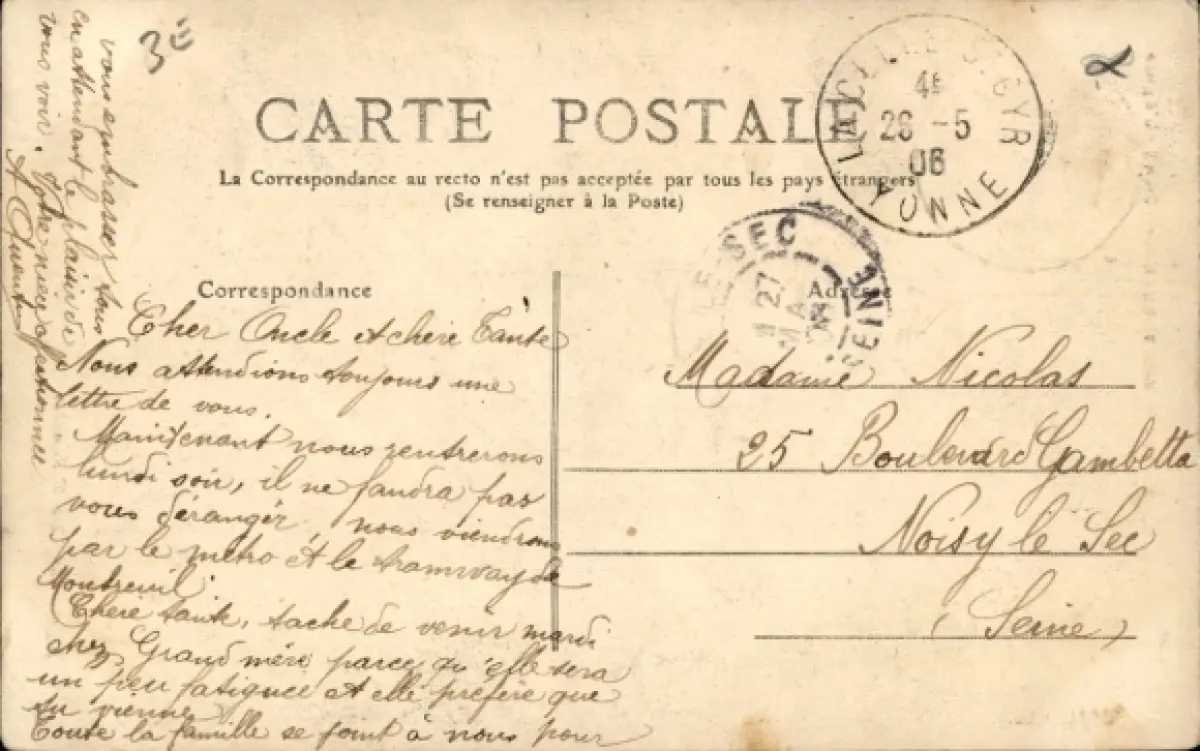 3E
CARTE POSTALE
La Correspondance au recto n'est pas acceptée par tous les pays étrangers
(Se renseigner à la Poste)
LA CELLE ST CYR
26 -5
06
YONNE
LE SEC
27
MAI
SEINE
Correspondance
Adresse
Cher Oncle et chère Tante
Nous attendions toujours une
lettre de vous.
Maintenant nous rentrerons
lundi soir, il ne faudra pas
vous déranger, nous viendrons
par le métro et le tramway de
Montreuil.
Chere tante, tache de venir mardi
chez Grand mère parce qu'elle sera
un peu fatiguée et elle préfère que
tu vienne
Toute la famille se joint à nous pour
vous embrasser tous
en attendant le plaisir de
vous voir. Votre nièce affectionnée
Madame Nicolas
25 Boulevard Gambetta
Noisy le Sec
(Seine)